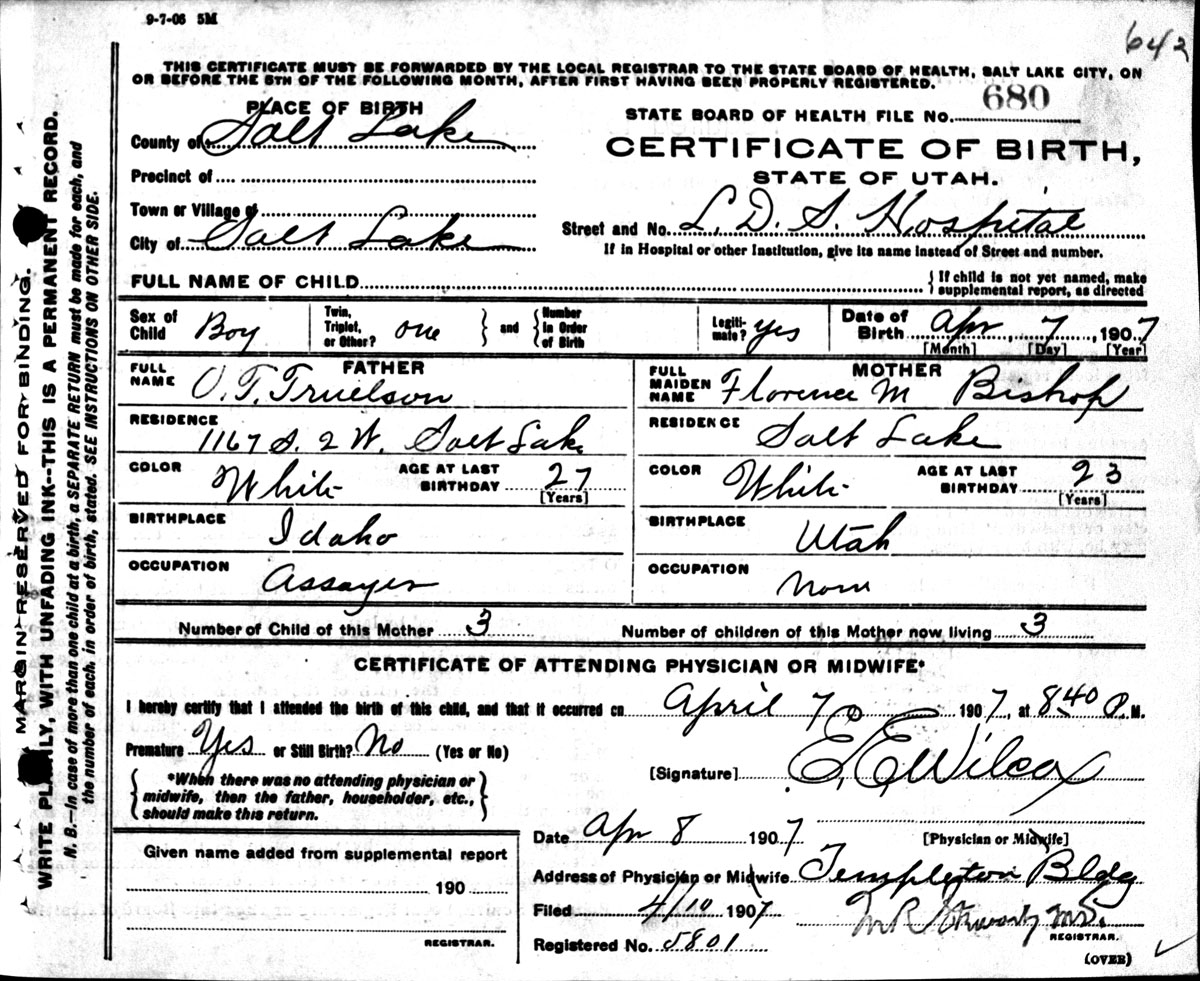 9-7-06 5M
642
THIS CERTIFICATE MUST BE FORWARDED BY THE LOCAL REGISTRAR TO THE STATE BOARD OF HEALTH, SALT LAKE CITY, ON
OR BEFORE THE 5TH OF THE FOLLOWING MONTH, AFTER FIRST HAVING BEEN PROPERLY REGISTERED.
PLACE OF BIRTH
STATE BOARD OF HEALTH FILE No. 680
County of Salt Lake
CERTIFICATE OF BIRTH,
STATE OF UTAH.
Precinct of
Town or Village of
Street and No. L. D. S. Hospital
City of Salt Lake
If in Hospital or other Institution, give its name instead of Street and number.
FULL NAME OF CHILD
{ If child is not yet named, make
supplemental report, as directed
Sex of Child Boy
Twin, Triplet, or Other? one } and { Number In Order of Birth
Legitimate? yes
Date of Birth Apr 7, 1907
[Month] [Day] [Year]
FATHER
FULL NAME O. T. Truelson
MOTHER
FULL MAIDEN NAME Florence M Bishop
RESIDENCE 1167 S. 2 W. Salt Lake
RESIDENCE Salt Lake
COLOR White AGE AT LAST BIRTHDAY 27 [Years]
COLOR White AGE AT LAST BIRTHDAY 23 [Years]
BIRTHPLACE Idaho
BIRTHPLACE Utah
OCCUPATION Assayer
OCCUPATION None
Number of Child of this Mother 3
Number of children of this Mother now living 3
CERTIFICATE OF ATTENDING PHYSICIAN OR MIDWIFE*
I hereby certify that I attended the birth of this child, and that it occurred on April 7 1907, at 8 40 P. M.
Premature Yes or Still Birth? No (Yes or No)
[Signature] E. E. Wilcox
{ *When there was no attending physician or
midwife, then the father, householder, etc.,
should make this return. }
Date Apr 8 1907
[Physician or Midwife]
Given name added from supplemental report
190
REGISTRAR.
Address of Physician or Midwife Templeton Bldg
Filed 4/10 1907
M R Stewart MD.
REGISTRAR.
Registered No. 5801
(OVER)
MARGIN RESERVED FOR BINDING.
WRITE PLAINLY, WITH UNFADING INK--THIS IS A PERMANENT RECORD.
N. B.--In case of more than one child at a birth, a SEPARATE RETURN must be made for each, and
the number of each, in order of birth, stated. SEE INSTRUCTIONS ON OTHER SIDE.